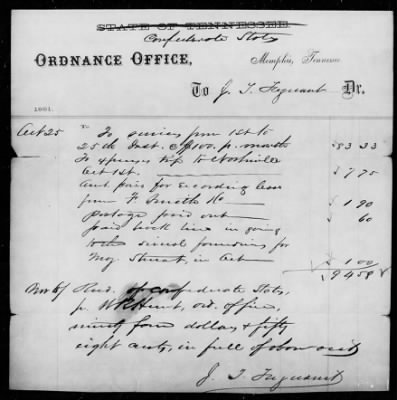 STATE OF TENNESSEE
Confederate States
ORDNANCE OFFICE,
Memphis, Tennessee
To J. T. Dr.
1861.
Oct 25 To services from 1st to
25th Inst. @ $100. p. month $83 33
To expenses trip to Nashville
Oct 1st. $7 75
Amt paid for recording lease
from F Smith $1 90
postage paid out $ 60
paid hack hire in going
to several foundries for
Maj Stewart, in Oct $1 00
$94 58
Nov 6/ Recd. of Confederate States,
p. W R Hunt, ord. officer,
ninety four dollars & fifty
eight cents, in full of above acct
J. T.